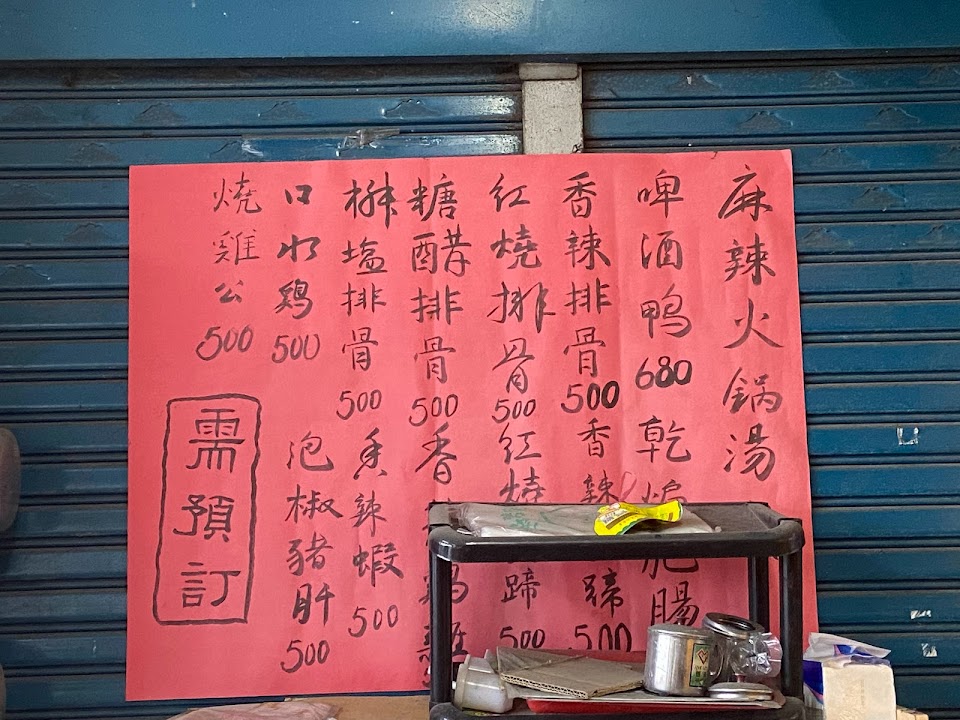 麻辣火鍋湯
啤酒鴨680
乾煸肥腸
香辣排骨500
香辣蹄500
红燒排骨500
红燒蹄500
糖醋排骨500
香鷄
椒塩排骨500
香辣蝦500
口水鷄500
泡椒豬肝500
燒雞公500
需預訂